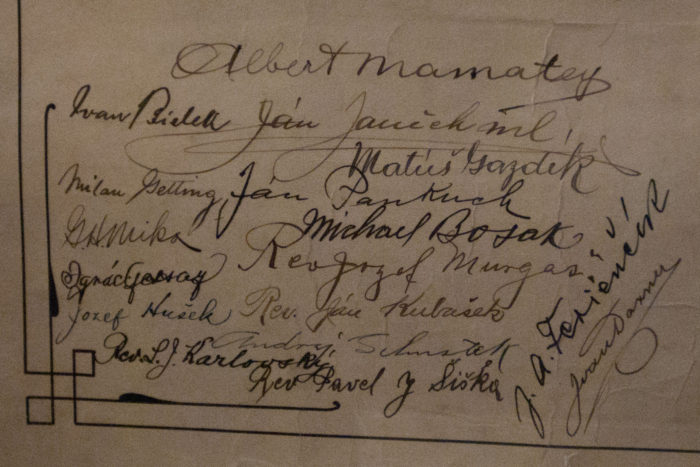 Albert Mamatey
Ivan Bielek Ján Janček ml.
Matúš Gazdík
Milan Getting, Ján Pankuch
GHMika Michael Bosak
Rev Jozef Murgaš
Ignác Gessay
Jozef Hušek Rev. Ján Kubašek
Andrij Schustek
Rev. L. J. Karlovský
Rev Pavel J Šiška
J. A. Ferienčík
Ivan Daxner